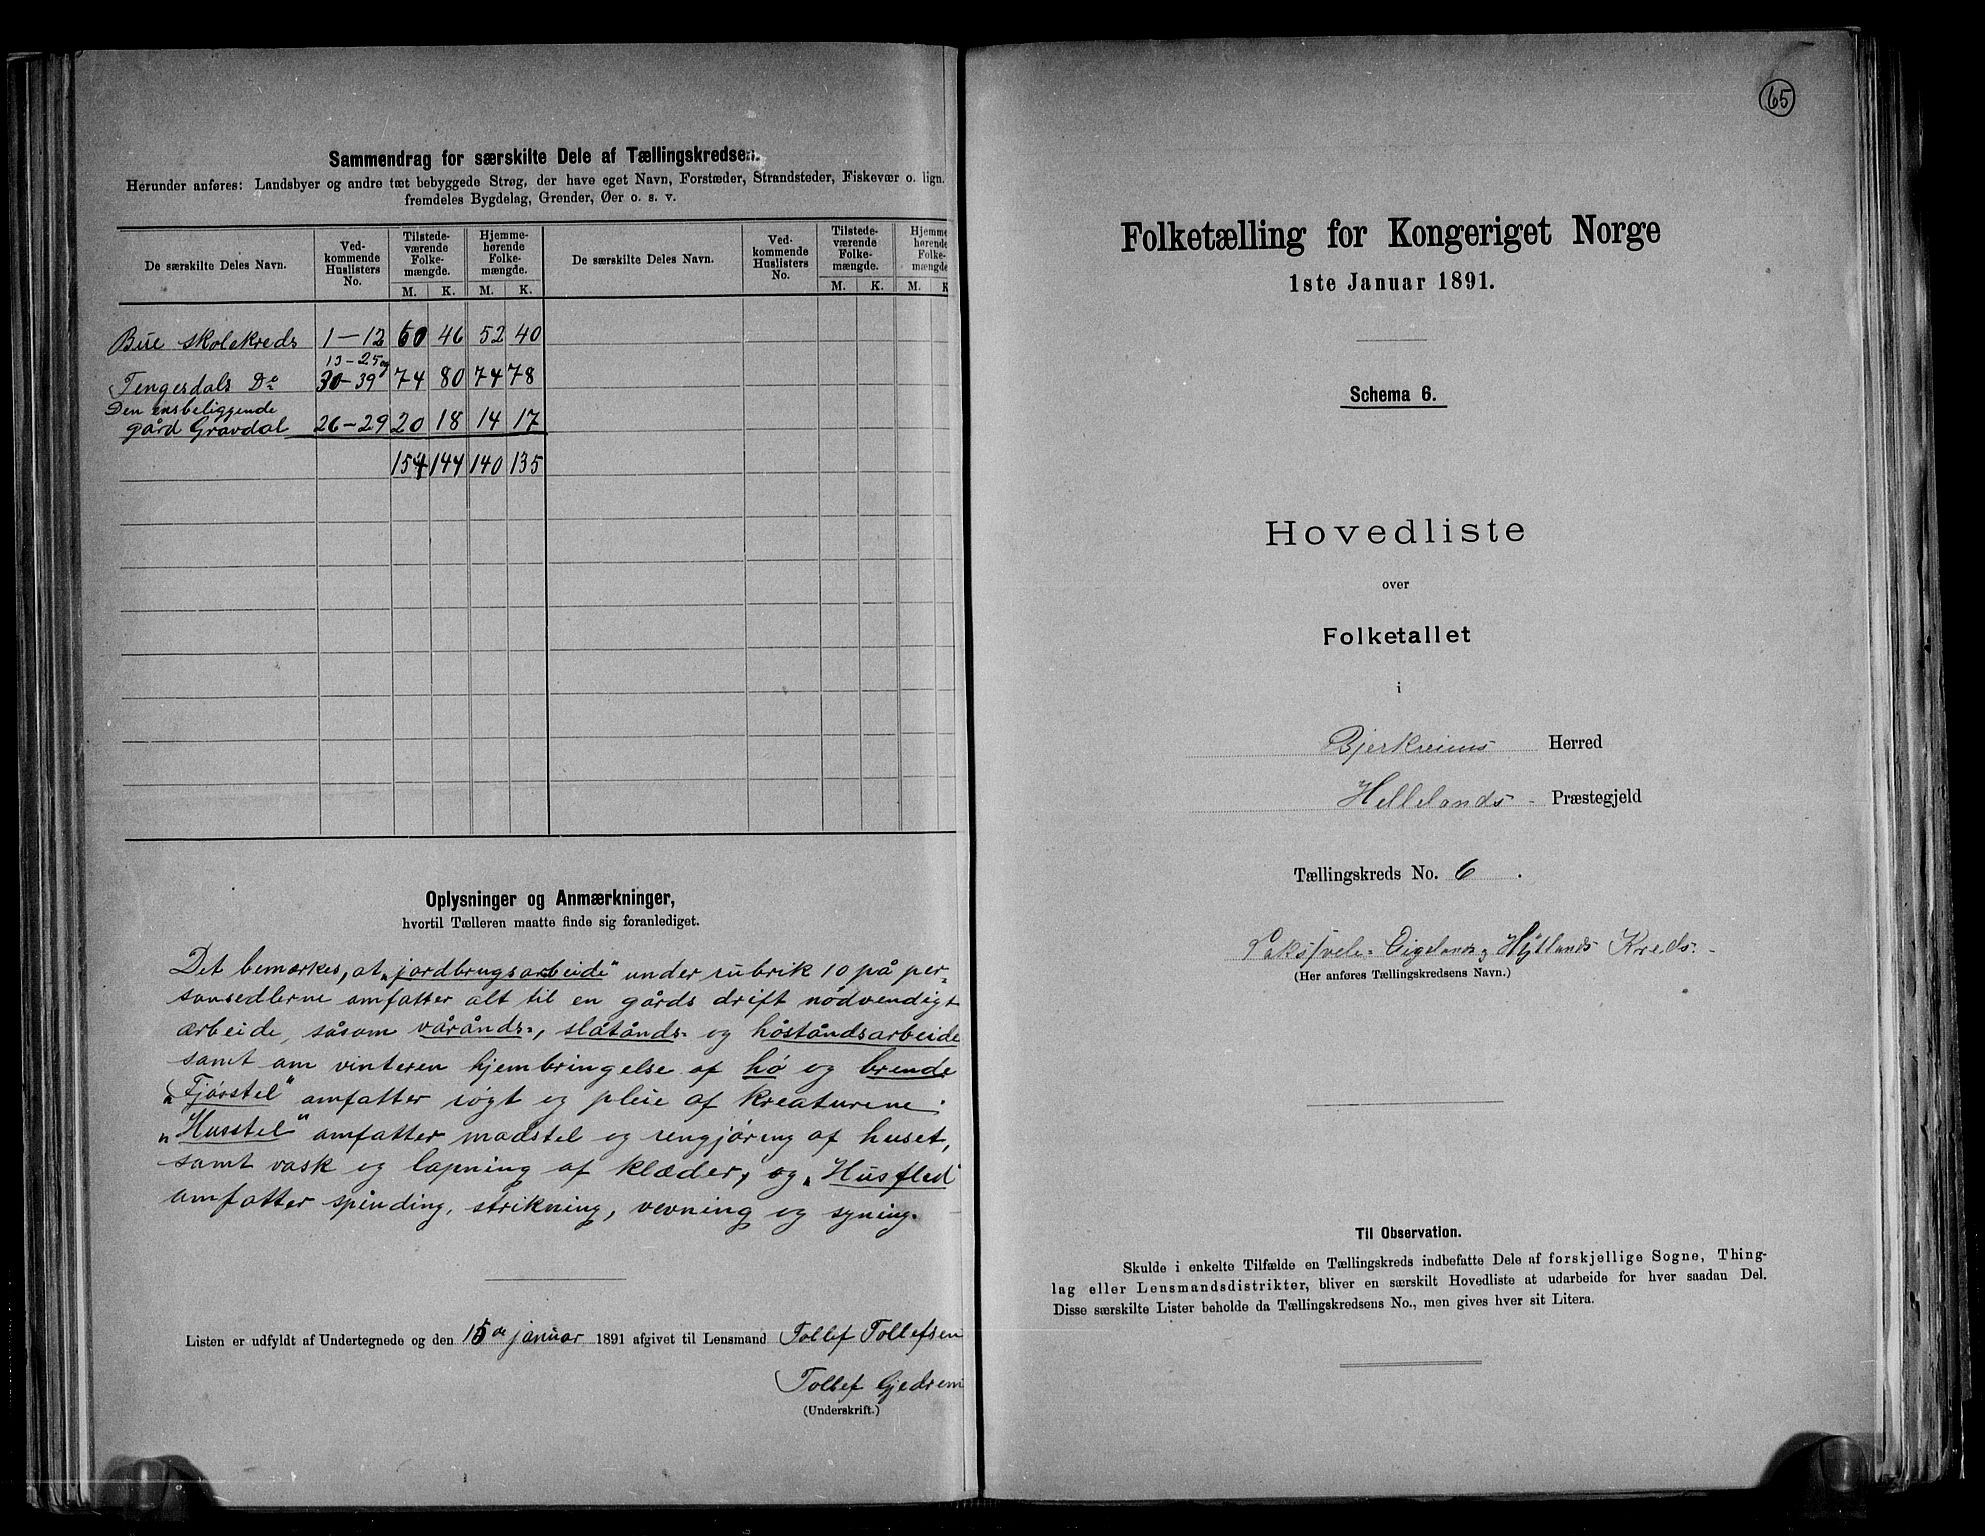 Sammendrag for særskilte Dele af Tællingskredsen.
Herunder anføres: Landsbyer og andre tæt bebyggede Strøg, der have eget Navn, Forstæder, Strandsteder, Fiskevær o. lign.
fremdeles Bygdelag, Grender, Øer o. s. v.
De særskilte Deles Navn. Ved-kommende Huslisters No. Tilstede-værende Folke-mængde. Hjemme-hørende Folke-mængde. De særskilte Deles Navn. Ved-kommende Huslisters No. Tilstede-værende Folke-mængde. Hjemme-hørende Folke-mængde
M. K. M. K. M. K. M. K
Bue skolekreds 1-12 60 46 52 40
13-25 og
Tengesdals Do 30-39 74 80 74 78
Den ensbeliggende
gård Gravdal 26-29 20 18 14 17
154 144 140 135
Oplysninger og Anmærkninger,
hvortil Tælleren maatte finde sig foranlediget.
Det bemærkes, at „jordbrugsarbeide" under rubrik 10 på per-
sonsedlerne omfatter alt til en gårds drift nødvendigt
arbeide, såsom våránds-, slåtånds- og høståndsarbeide
samt om vinteren hjembringelse af hø og brende
„Fjøsstel" omfatter røgt og pleie af kreaturene;
„Husstel" omfatter madstel og rengjøring af huset,
samt vask og lapning af klæder, og „Husflid
omfatter spinding, strikning, vevning og syning.
Listen er udfyldt af Undertegnede og den 15de januar 1891 afgivet til Lensmand Tollef Tollefsen
Tollef Gjedrem
(Underskrift.)
65
Folketælling for Kongeriget Norge
1ste Januar 1891.
Schema 6.
Hovedliste
over
Folketallet
i
Bjerkreims Herred
Hellelands - Præstegjeld
Tællingskreds No. 6.
Eigelands Kreds.
(Her anføres Tællingskredsens Navn.)
Til Observation.
Skulde i enkelte Tilfælde en Tællingskreds indbefatte Dele af forskjellige Sogne, Thing-
lag eller Lensmandsdistrikter, bliver en særskilt Hovedliste at udarbeide for hver saadan Del.
Disse særskilte Lister beholde da Tællingskredsens No., men gives hver sit Litera.